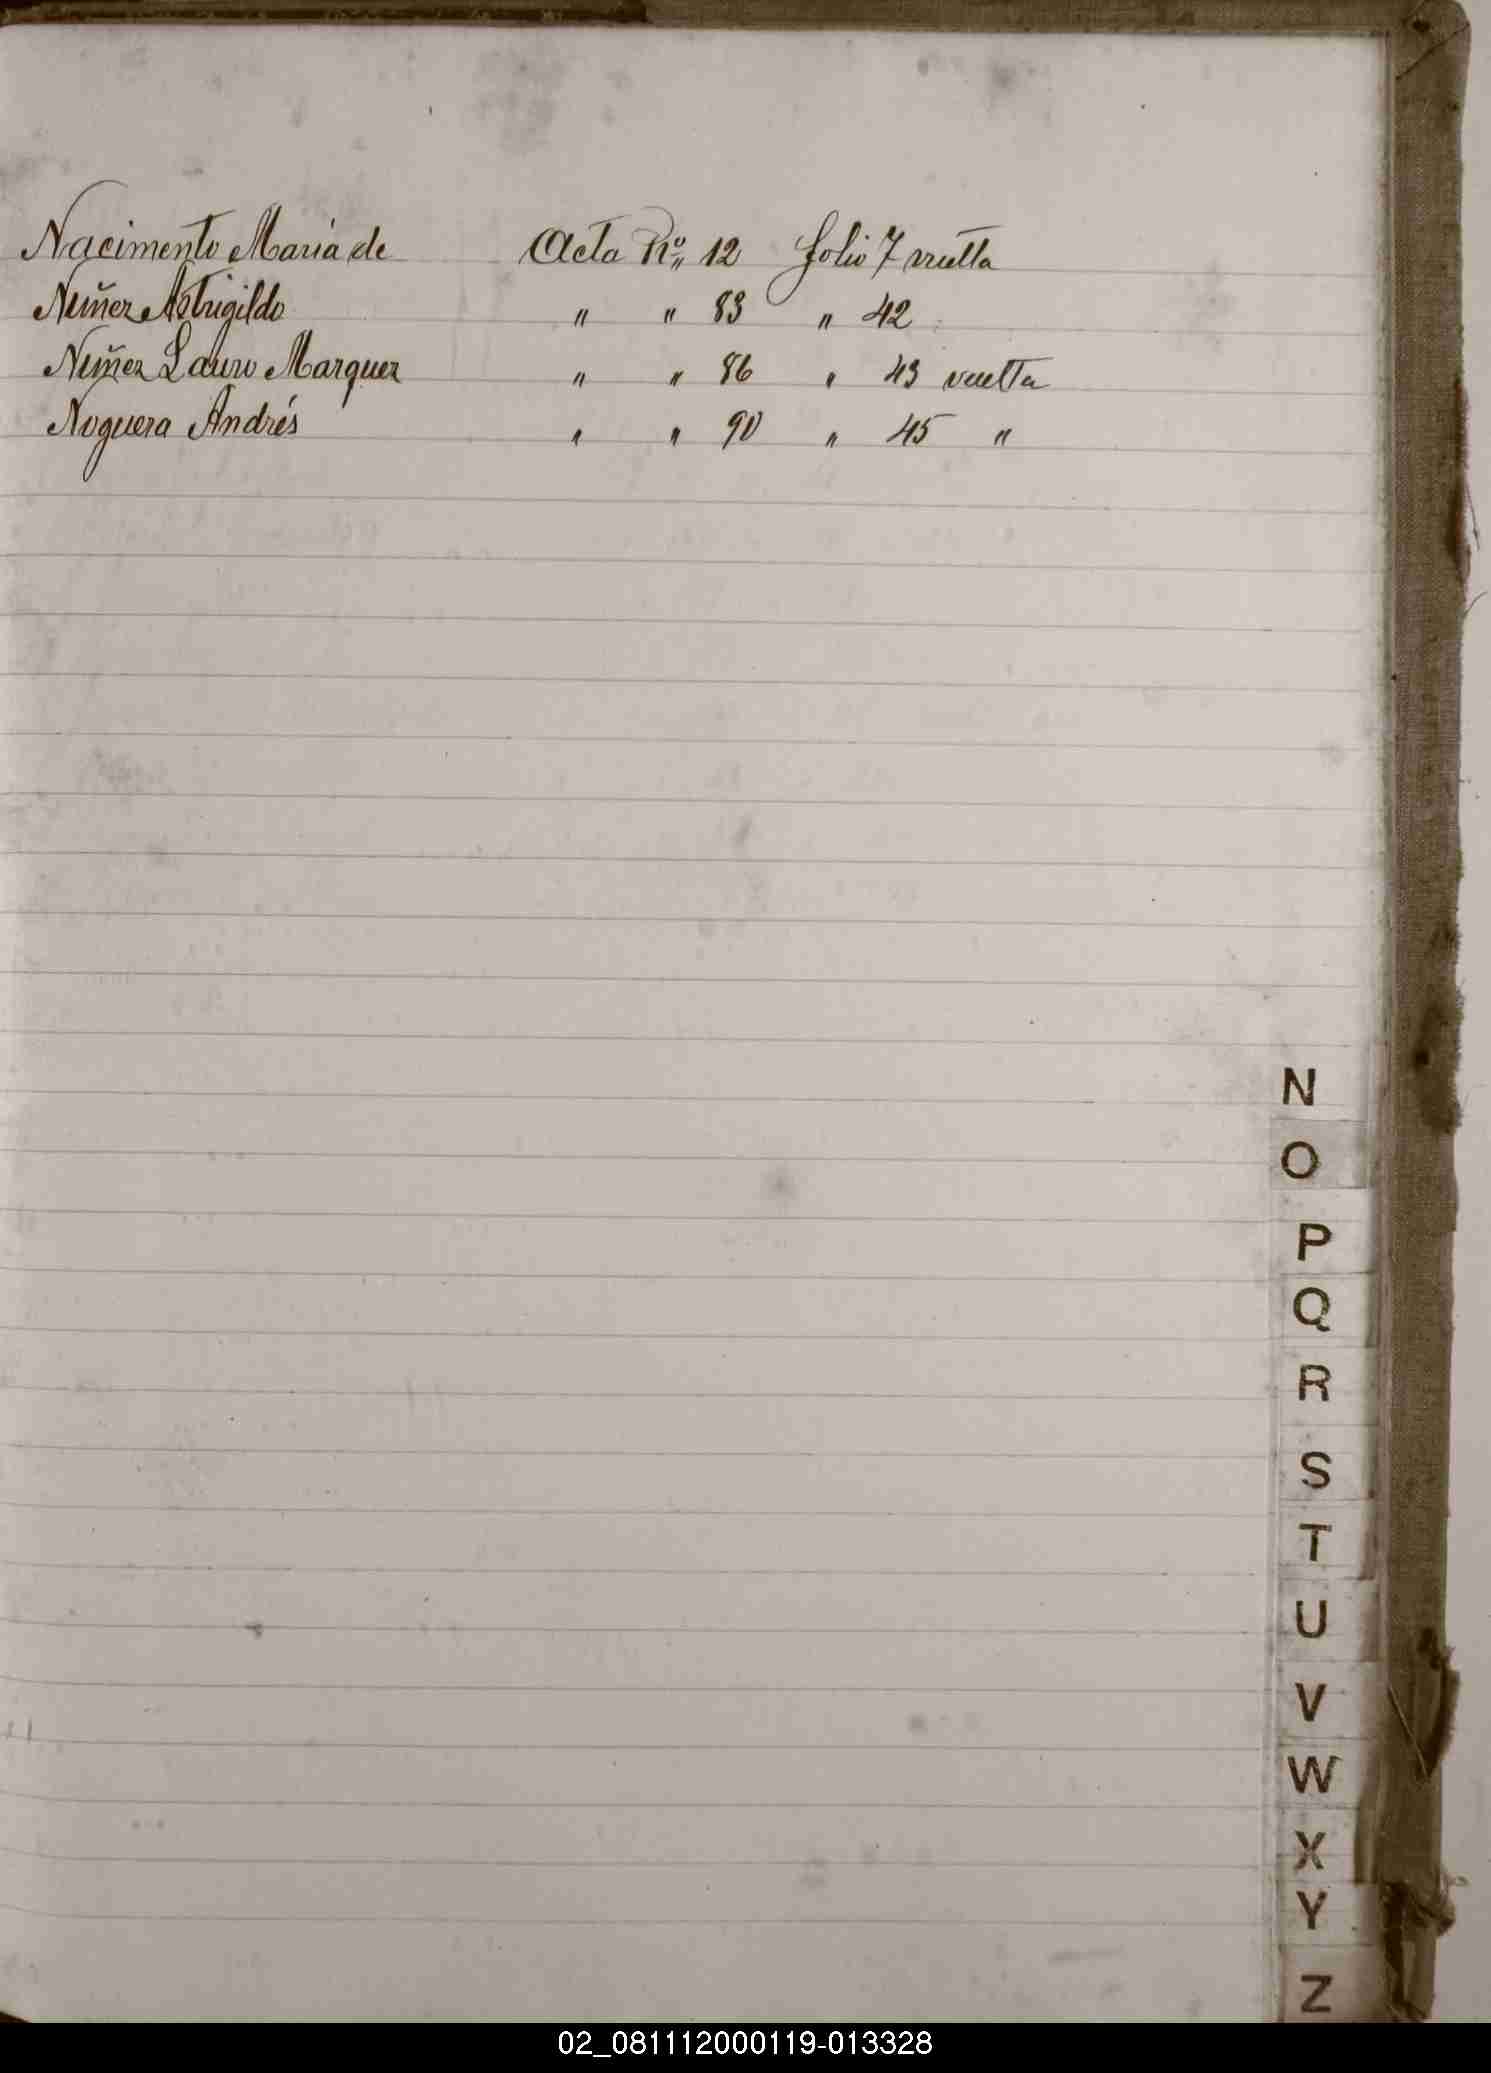 Nacimento María de Acta Nº 12 folio 7 vuelta
Nuñez Astrigildo " " 83 " 42
Nuñez Lauro Marquez " " 86 " 43 vuelta
Noguera Andrés " " 90 " 45 "
N
O
P
Q
R
S
T
U
V
W
X
Y
Z
02_081112000119-013328